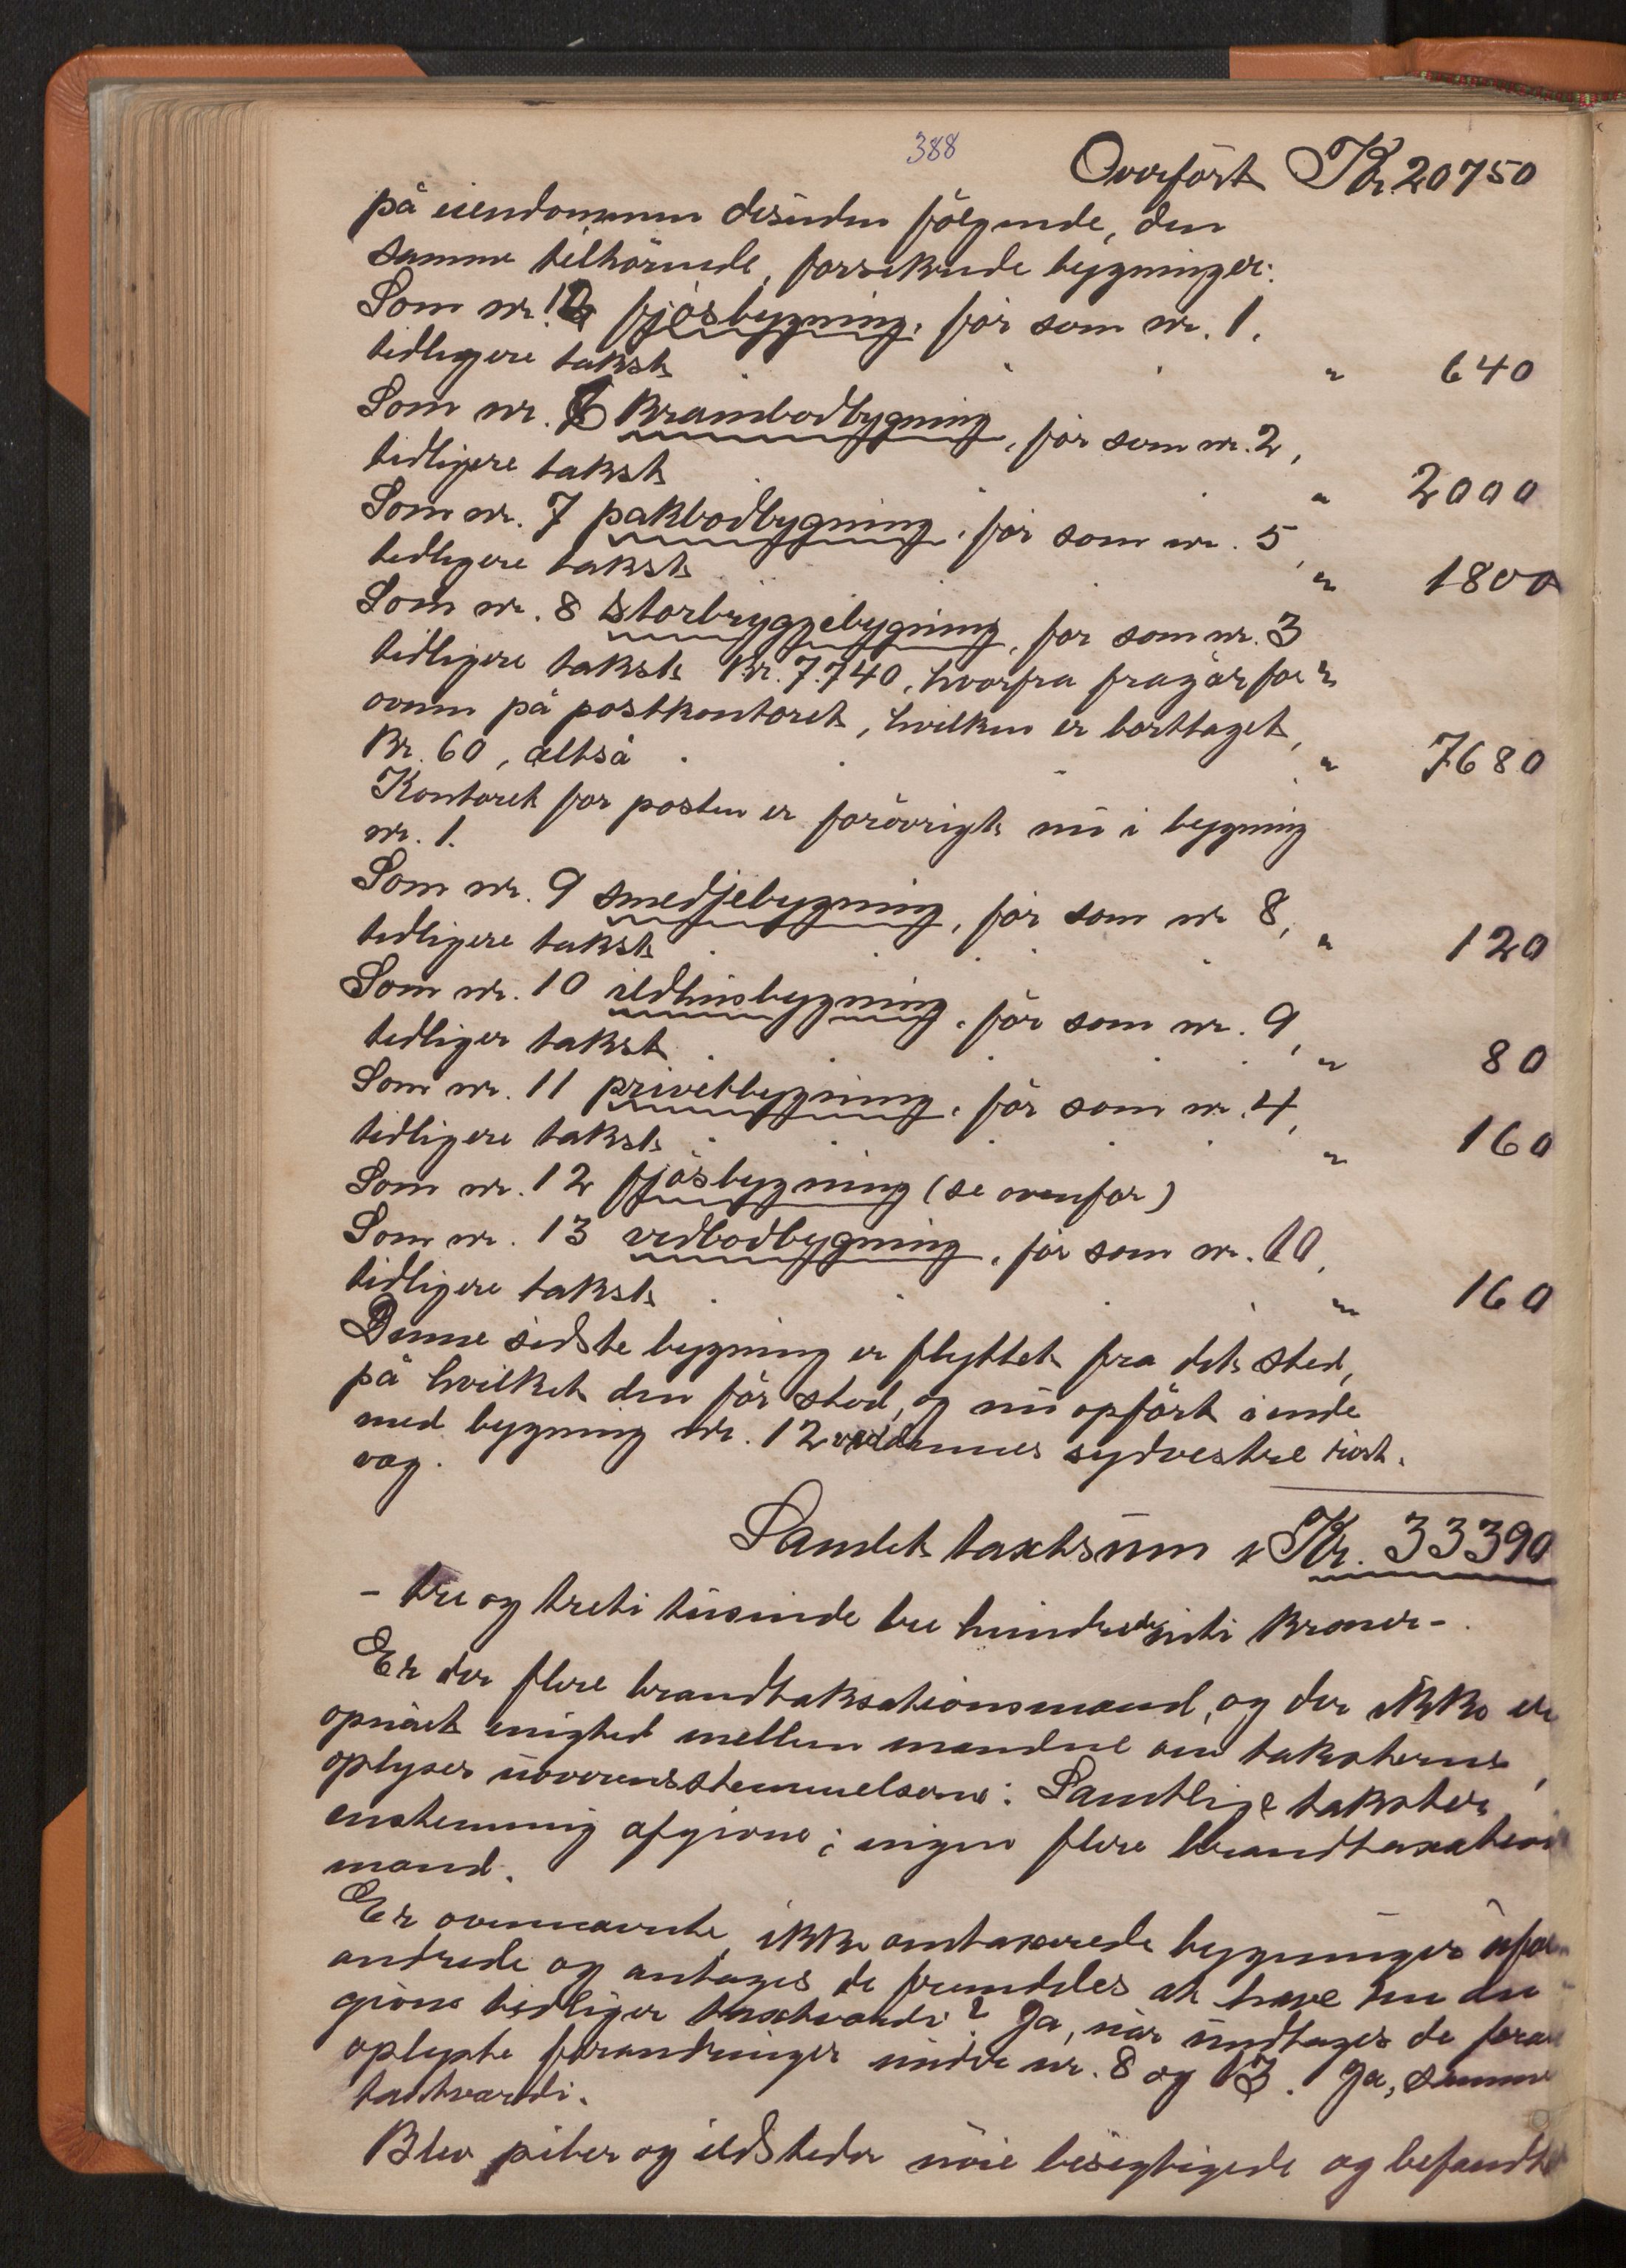 388
Overført Kr. 20750
på eiendommen desuden følgende, den
samme tilhørende, forsikrede bygninger:
Som nr. 12 fjøsbygning, før som nr. 1.
tidligere takst " 640
Som nr. 6 krambodbygning, før som nr. 2,
tidligere takst " 2000
Som nr. 7 pakbodbygning, før som nr. 5,
tidligere takst " 1800
Som nr. 8 storbryggebygning, før som nr. 3
tidligere takst kr. 7.740, hvorfra fragår for
ovnen på postkontoret, hvilken er borttaget,
kr. 60, altså " 7680
Kontoret for posten er forøvrigt nu i bygning
nr. 1.
Som nr. 9 smedjebygning, før som nr 8,
tidligere takst " 120
Som nr. 10 ildhusbygning, før som nr. 9,
tidliger takst " 80
Som nr. 11 privetbygning, før som nr. 4,
tidligere takst " 160
Som nr. 12 fjøsbygning (se ovenfor)
Som nr. 13 vedbodbygning, før som nr. 10,
tidligere takst " 160
Denne sidste bygning er flyttet fra det sted,
på hvilket den før stod, og nu opført i ende
med bygning nr. 12 ved dennes sydvestre
væg.
Samlet taxtsum Kr. 33390
- tre og treti tusinde tre hundrede niti kroner -.
Er der flere brandtaksationsmænd, og der ikke er
opnået enighed mellem mændene om taksterne,
oplyses uoverensstemmelserne: Samtlige takster
enstemmig afgivne; ingen flere brandtaxations
mænd.
Er ovennævnte, ikke omtaxerede bygninger ufor
andrede og antages de fremdeles at have den an
givne tidliger taxtværdi? Ja, når undtages de foran
oplyste forandringer under nr. 8 og 13. Ja, samme
taxtværdi.
Blev piber og ildsteder nøie besigtigede og befandtes